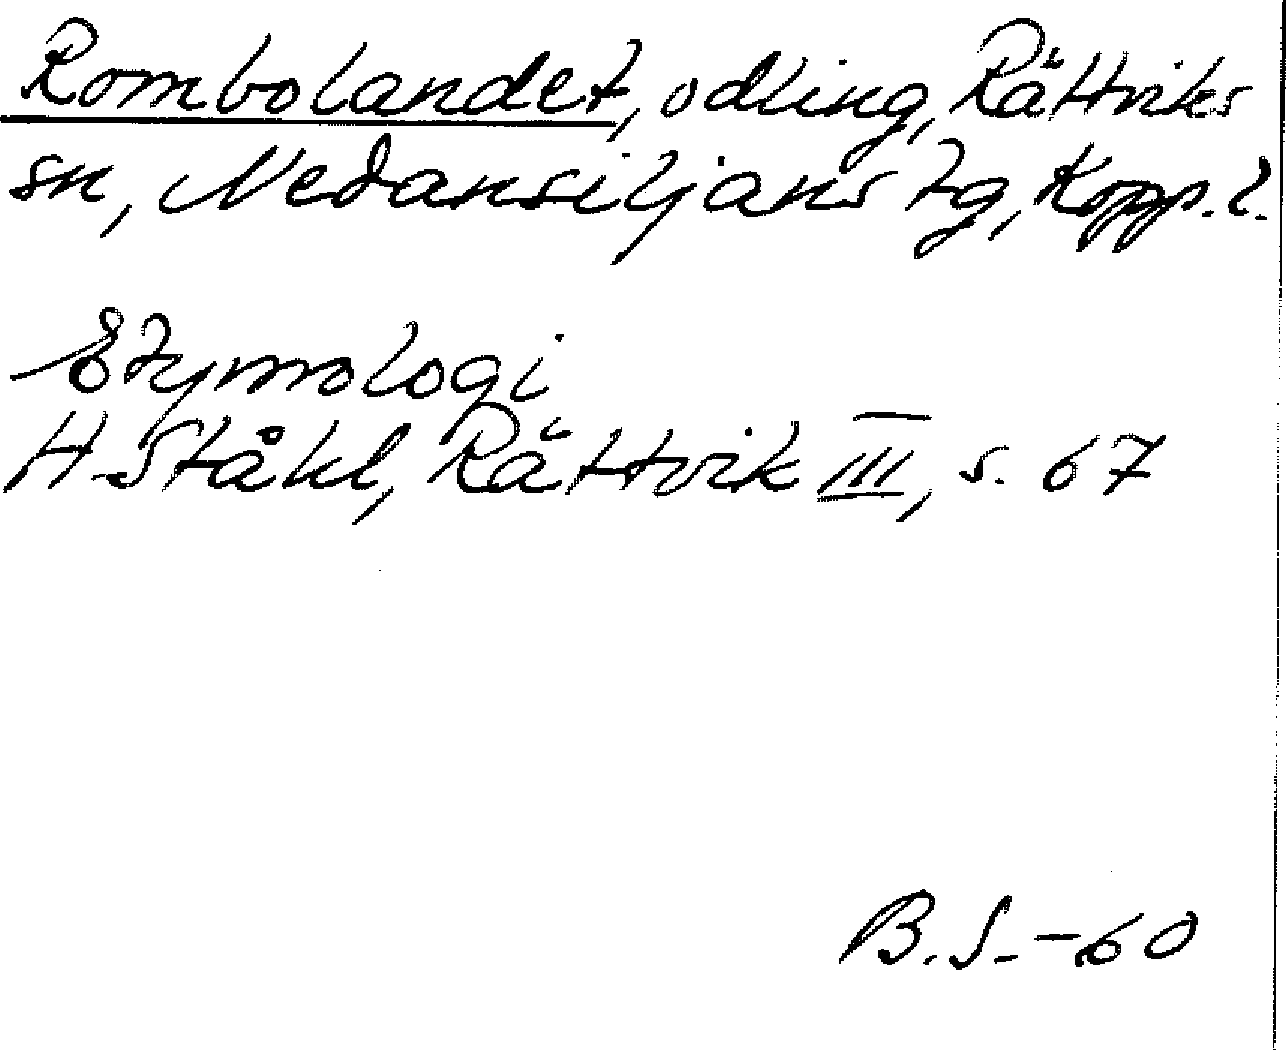 Rombolandet, odling, Rättviks
sn, Nedansiljans tg, Kopp. l.
Etymologi
H Ståhl, Rättvik III, s. 67
B.S. -60